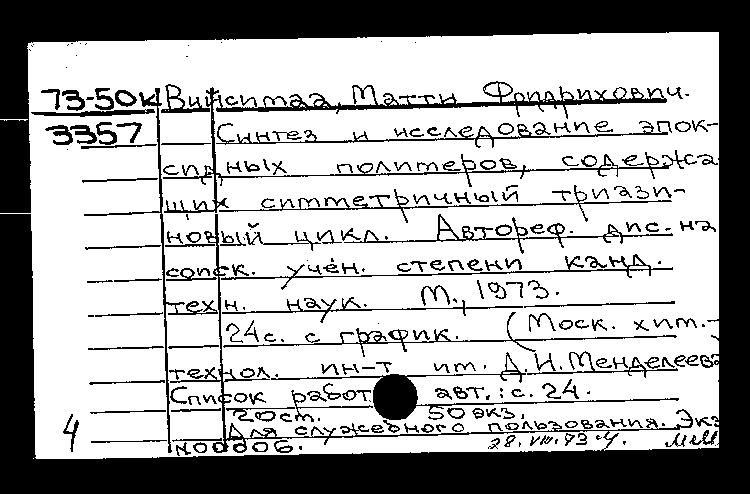 73-50к Виисимаа, Матти Фридрихович.
3357 Синтез и исследование эпок-
сидных полимеров, содержа
щих симметричный триази-
новый цикл. Автореф. дис. на
соиск. учен. степени канд.
техн. наук. М., 1973.
24с. с график. (Моск. хим.-
технол. ин-т им. Д.И. Менделеева
Список работ авт.: с. 24.
20ст. 50 экз.
4 Для служебного пользования. Экз
N00006. 28.VIII.73 ч.